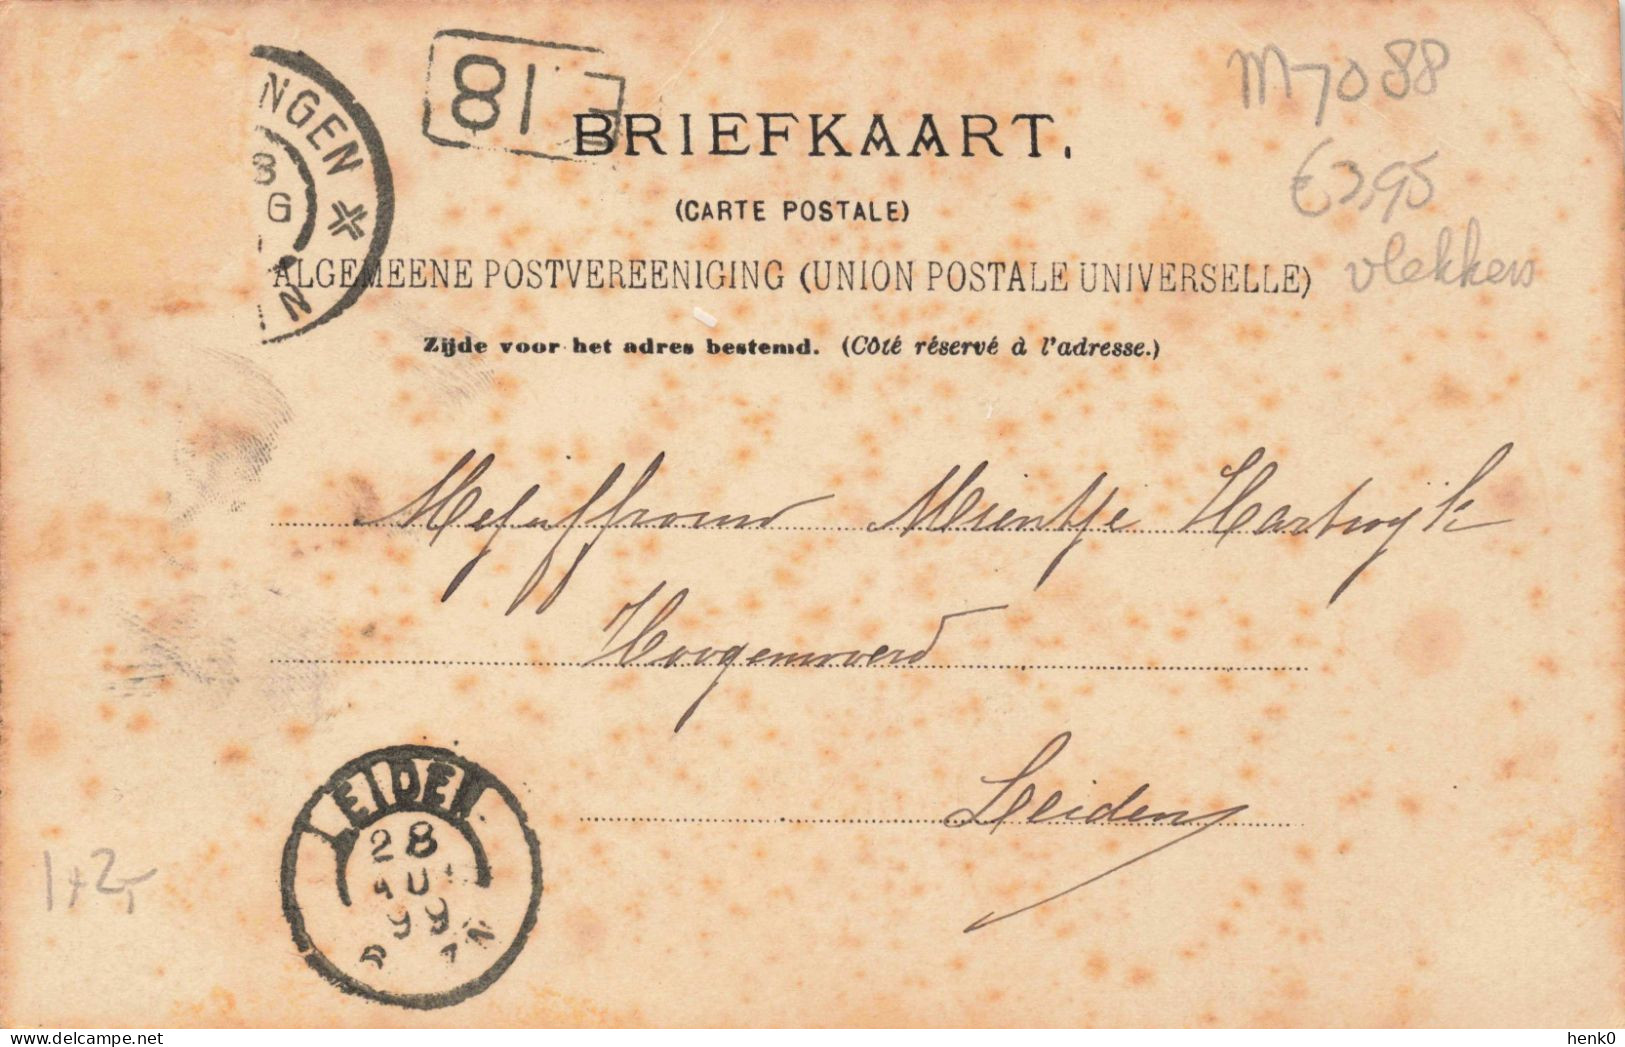 NGEN
8
G
N
81
BRIEFKAART.
(CARTE POSTALE)
ALGEMEENE POSTVEREENIGING (UNION POSTALE UNIVERSELLE)
Zijde voor het adres bestemd. (Côté réservé à l'adresse.)
M7088
€3,95
vlekken
Mejuffrouw Mientje Hartwijk
Hoogewoerd
Leiden
LEIDEN
28
AU
99
N
1+2,-
henk0